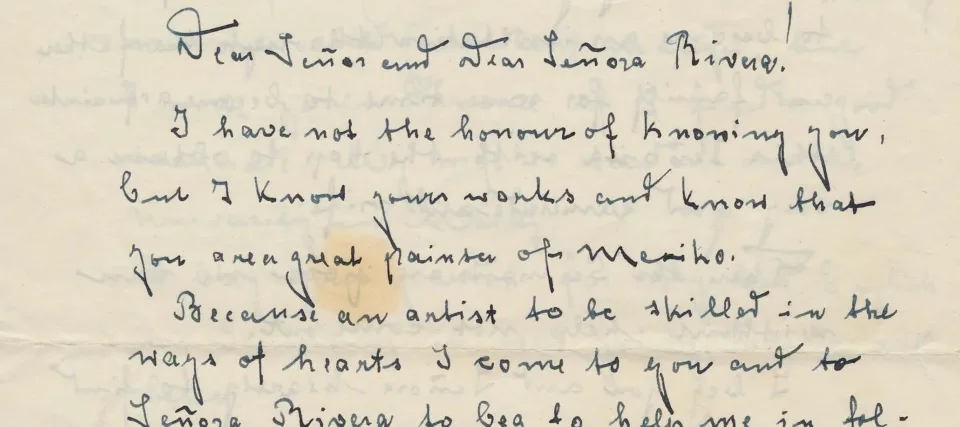 Dear Señor and Dear Señora Rivera!
I have not the honour of knowing you,
but I know your works and know that
you are a great painter of Mexiko.
Because an artist to be skilled in the
ways of hearts I come to you and to
Señora Rivera to beg to help me in fol-